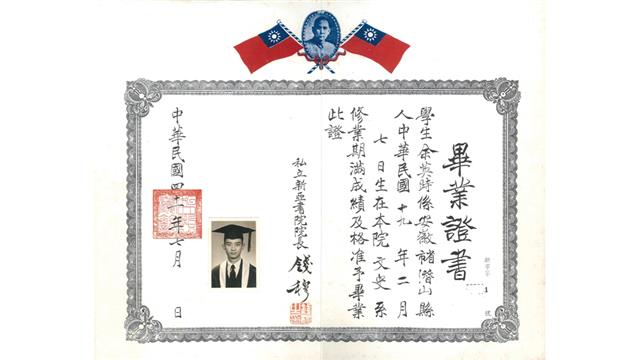 畢業證書
學生余英時係安徽省潛山縣
人中華民國十九年二月
七日生在本院文史系
修業期滿成績及格准予畢業
此證
私立新亞書院院長錢穆
中華民國四十一年七月 日